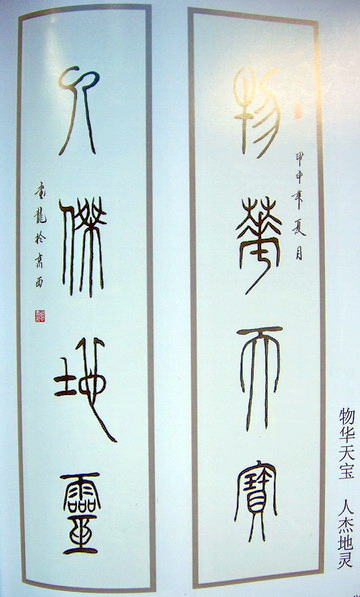 物華天寶
甲申年夏月
人傑地靈
龍於京西
物华天宝 人杰地灵